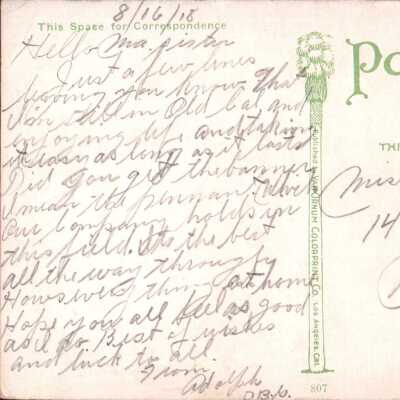 8/16/18
This Space for Correspondence
Hello Ma. sister
Just a few lines
leaving you know that
I'm still in Old Cal, and
enjoying life and taking
it easy as long as it lasts
Did you get the banner
I mean the pennant I have
Our Company holds in
this field. Its the best
all the way through
Hows every thing at home
Hope you all feel as good
as I do. Best of wishes
and luck to all
From
Adolph
D.B.G.
Published by Van Ornum Colorprint Co., Los Angeles, Cal.
807
Po
TH
Miss
14